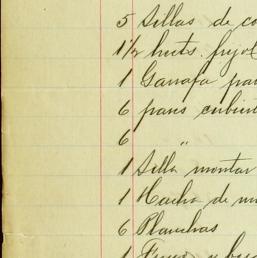 5 Sillas de co
1½ huts. frijol
1 Garrafa par
6 pares cubier
6 "
1 Silla montar
1 Hacha de m
6 Planchas
1